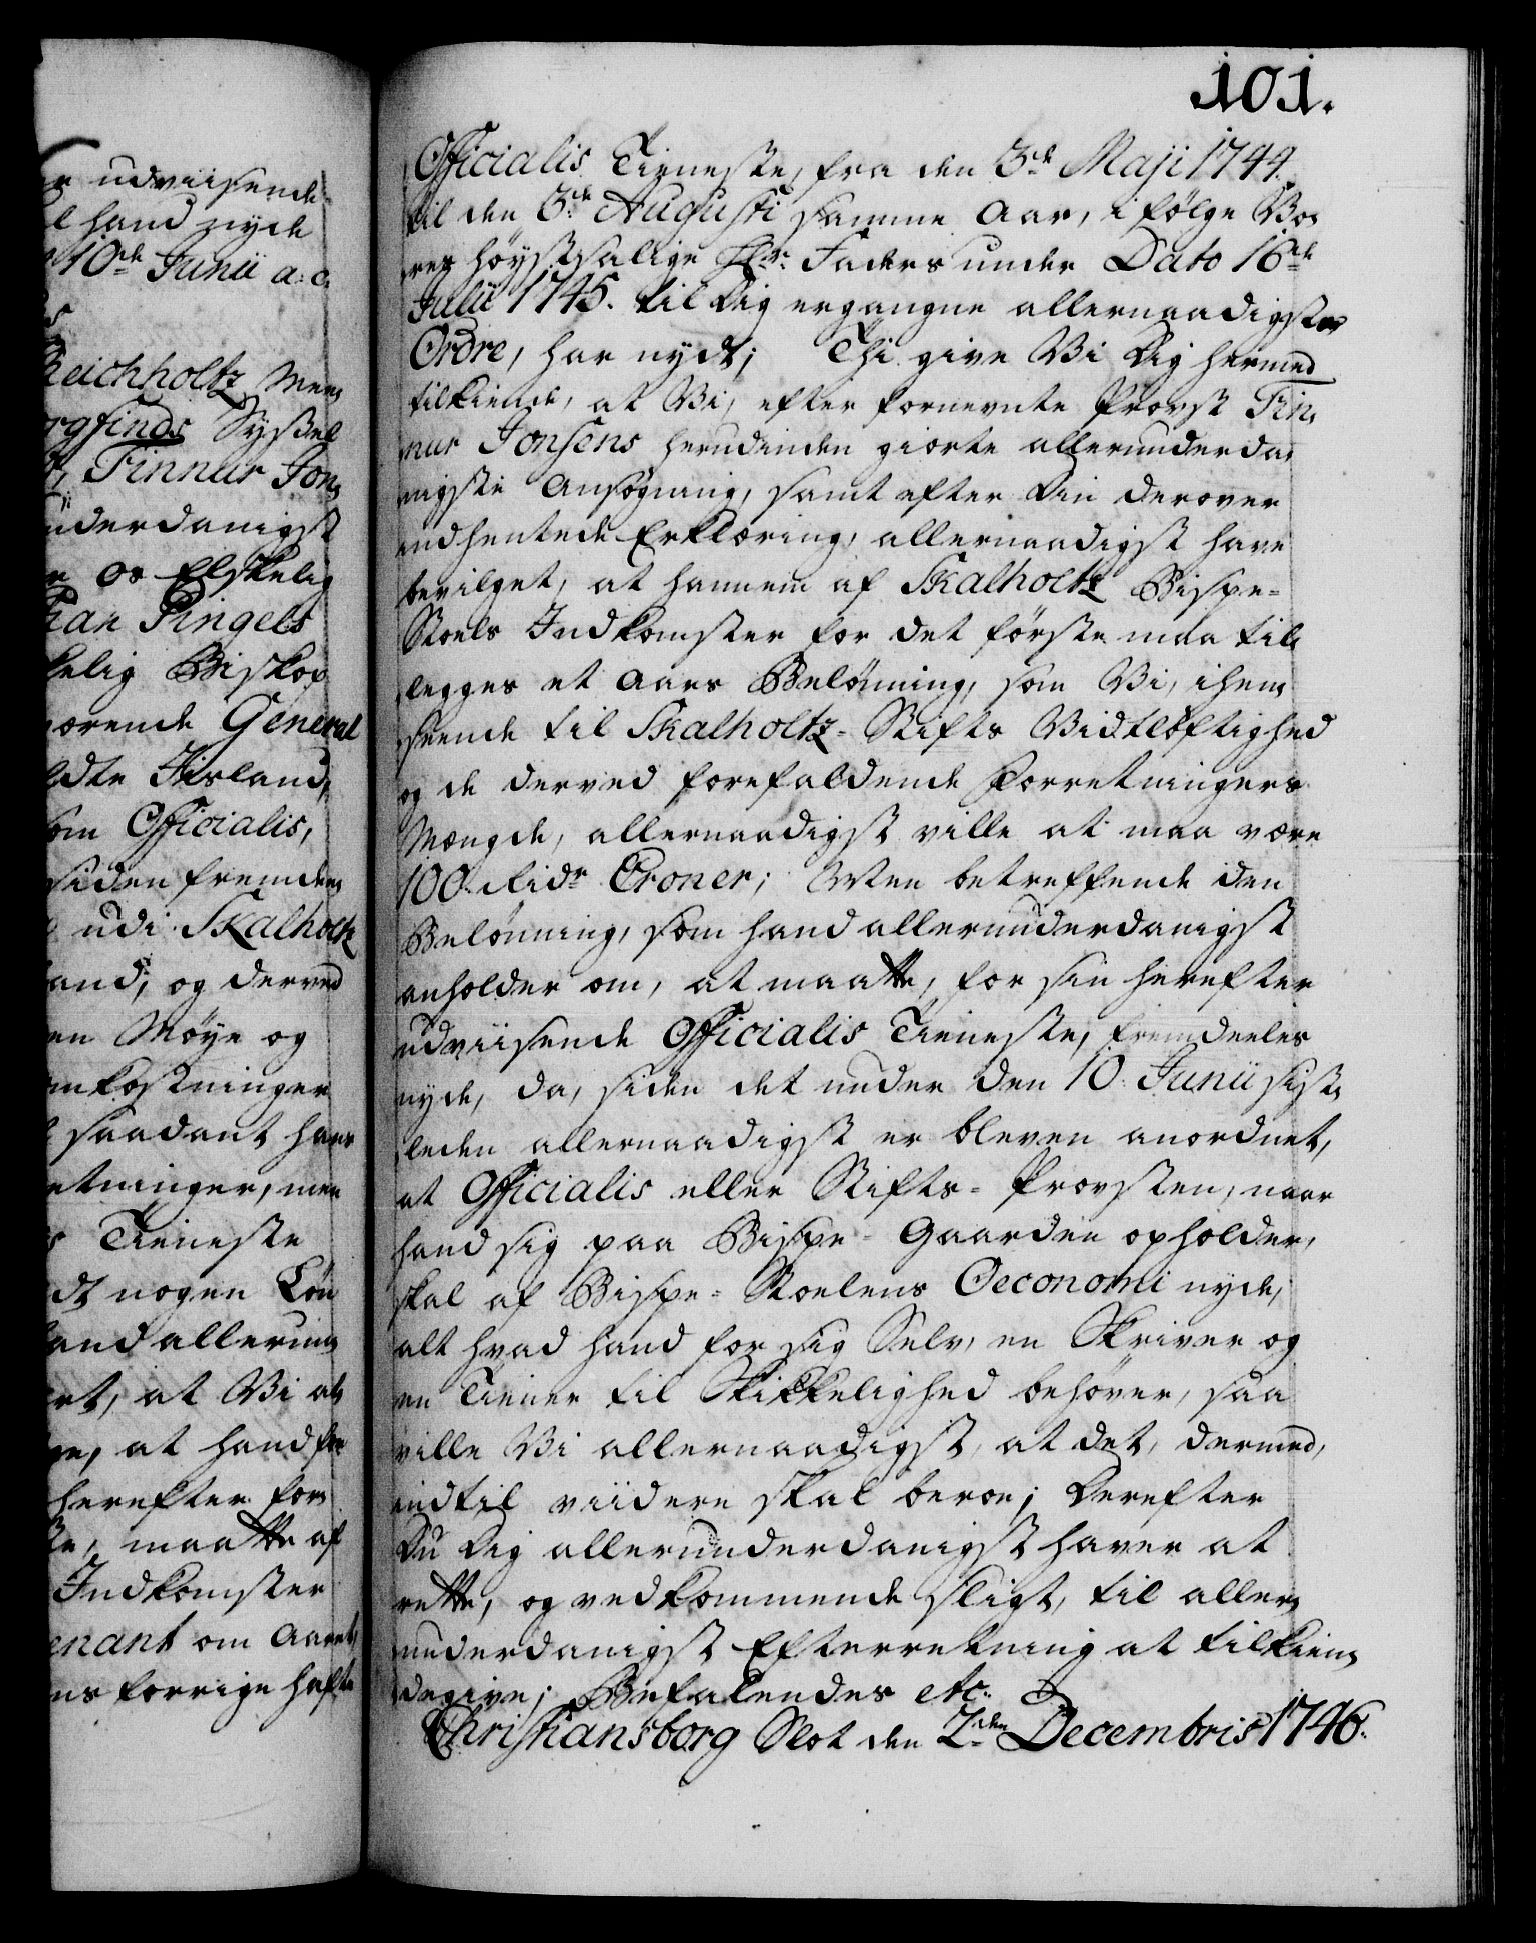 r udviisende
l hand nyde
10de Junii a: c.
Reichholtz Men
rgfinds Syssel
t, Finnur Jon,
nderdanigst
r os Elskelig
tian Pingels
kelig Biskop
værende General
ldte Iisland,
som Officialis,
siden fremdeel
udi Skalholtz
and, og derved
en Møye og
mkostninger
saadant hans
etninger, men
s Tieneste
dt nogen Løn
and allerun,
rt, at Vi al
e, at hand for
herefter for,
te, maatte af
Indkomster
enant om Aaret,
ns forrige hafte
101.
Officialis Tieneste, fra den 3de Maji 1744.
til den 3de Augusti samme Aar, i følge Vo,
res høystsalige Hr. Faders under Dato 16de
Julii 1745. til Dig ergangne allernaadigste
Ordre, har nydt; Thi give Vi Dig hermed
tilkiende, at Vi, efter fornevnte Provst Fin,
nur Jonsens herudinden giorte allerunderda,
nigste Ansøgning, samt efter Din derover
indhentede Erklæring, allernaadigst have
bevilget, at hannem af Skalholtz Bispe-
Stoels Indkomster for det første maa til,
legges et Aars Belønning, som Vi, i hen,
seende til Skalholtz-Stifts Vidtløftighed
og de derved forefaldende Forretningers
Mængde, allernaadigst ville at maa være
100. Rixdr Croner; Men betreffende den
Belønning, som hand allerunderdanigst
anholder om, at maatte, for sin herefter
udviisende Officialis Tieneste, fremdeeles
nyde, da, siden det under den 10. Junii sidst,
leden allernaadigst er bleven anordnet,
at Officialis eller Stifts-Provsten, naar
hand sig paa Bispe-Gaarden opholder,
skal af Bispe-Stoelens Oeconomi nyde,
alt hvad hand for sig Selv, en Skriver og
en Tiener til Skikkelighed behøver, saa
ville Vi allernaadigst, at det, dermed,
indtil viidere skal beroe; Derefter
Du Dig allerunderdanigst haver at
rette, og vedkommende sligt, til aller,
underdanigst Efterretning at tilkien,
degive; Befalendes etc.
Christiansborg Slot den 2den Decembris 1746.